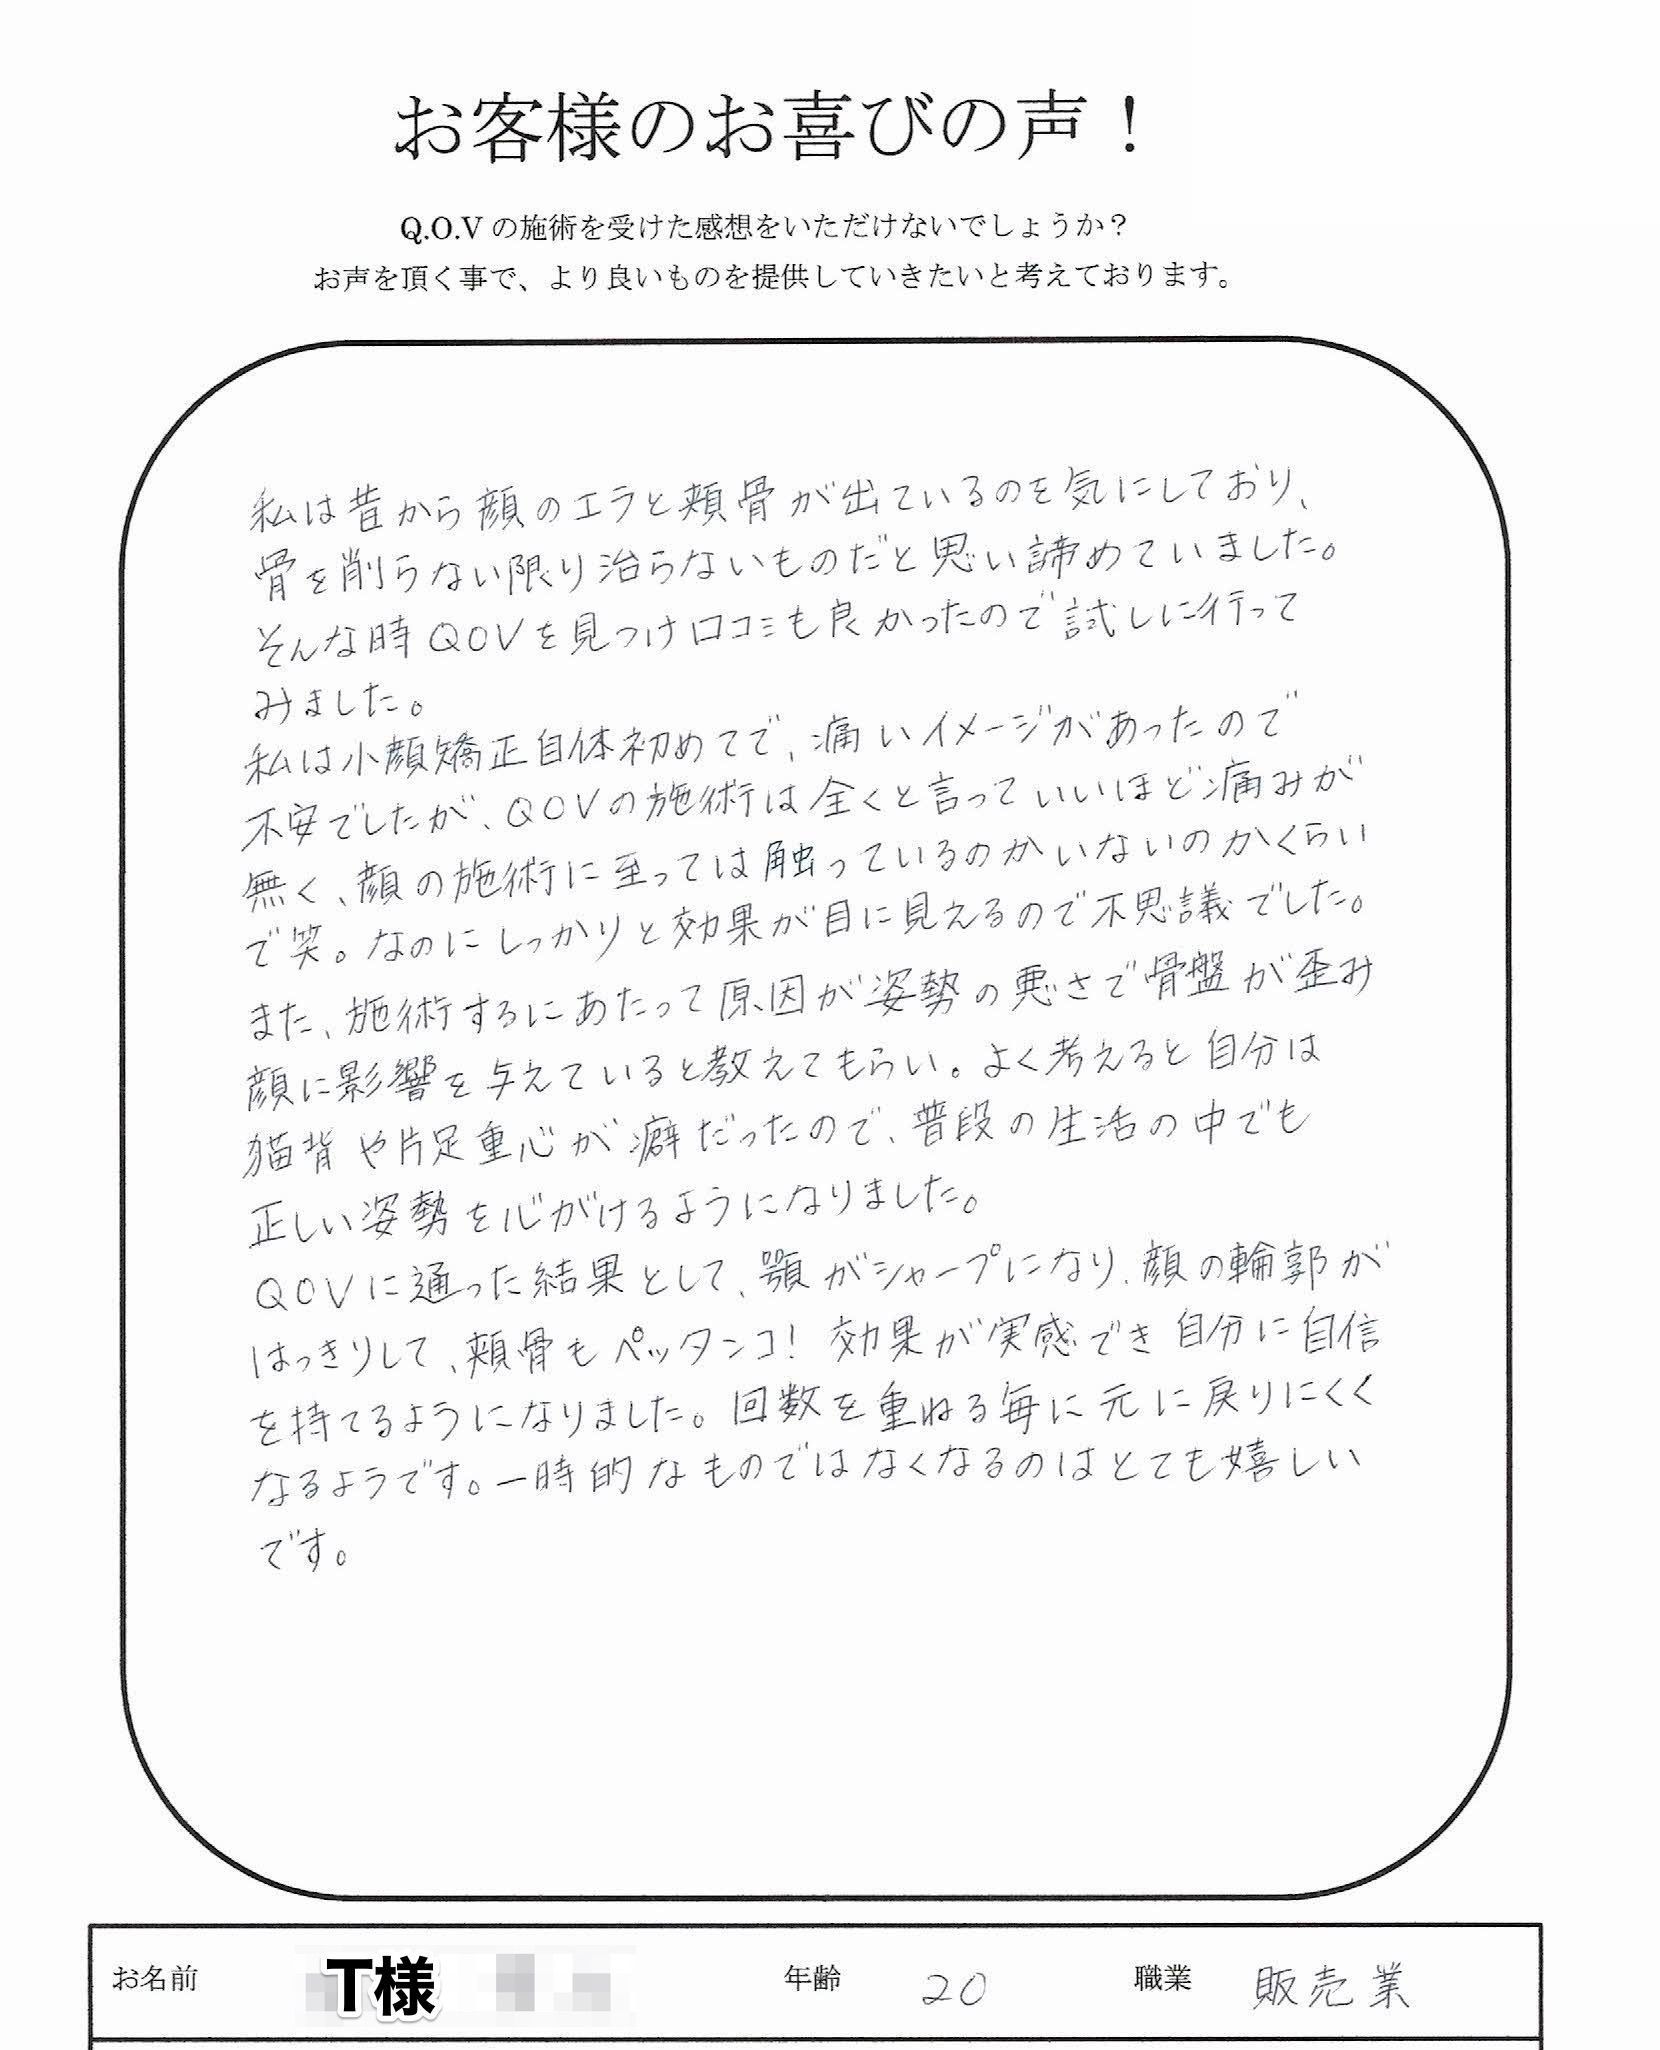 お客様のお喜びの声！
Q.O.Vの施術を受けた感想をいただけないでしょうか？
お声を頂く事で、より良いものを提供していきたいと考えております。
私は昔から顔のエラと頬骨が出ているのを気にしており、
骨を削らない限り治らないものだと思い諦めていました。
そんな時QOVを見つけ口コミも良かったので試しに行って
みました。
私は小顔矯正自体初めてで、痛いイメージがあったので
不安でしたが、QOVの施術は全くと言っていいほど痛みが
無く、顔の施術に至っては触っているのかいないのかくらい
で笑。なのにしっかりと効果が目に見えるので不思議でした。
また、施術するにあたって原因が姿勢の悪さで骨盤が歪み
顔に影響を与えていると教えてもらい。よく考えると自分は
猫背や片足重心が癖だったので、普段の生活の中でも
正しい姿勢を心がけるようになりました。
QOVに通った結果として、顎がシャープになり、顔の輪郭が
はっきりして、頬骨もペッタンコ！効果が実感でき自分に自信
を持てるようになりました。回数を重ねる毎に元に戻りにくく
なるようです。一時的なものではなくなるのはとても嬉しい
です。
お名前 T様 年齢 20 職業 販売業